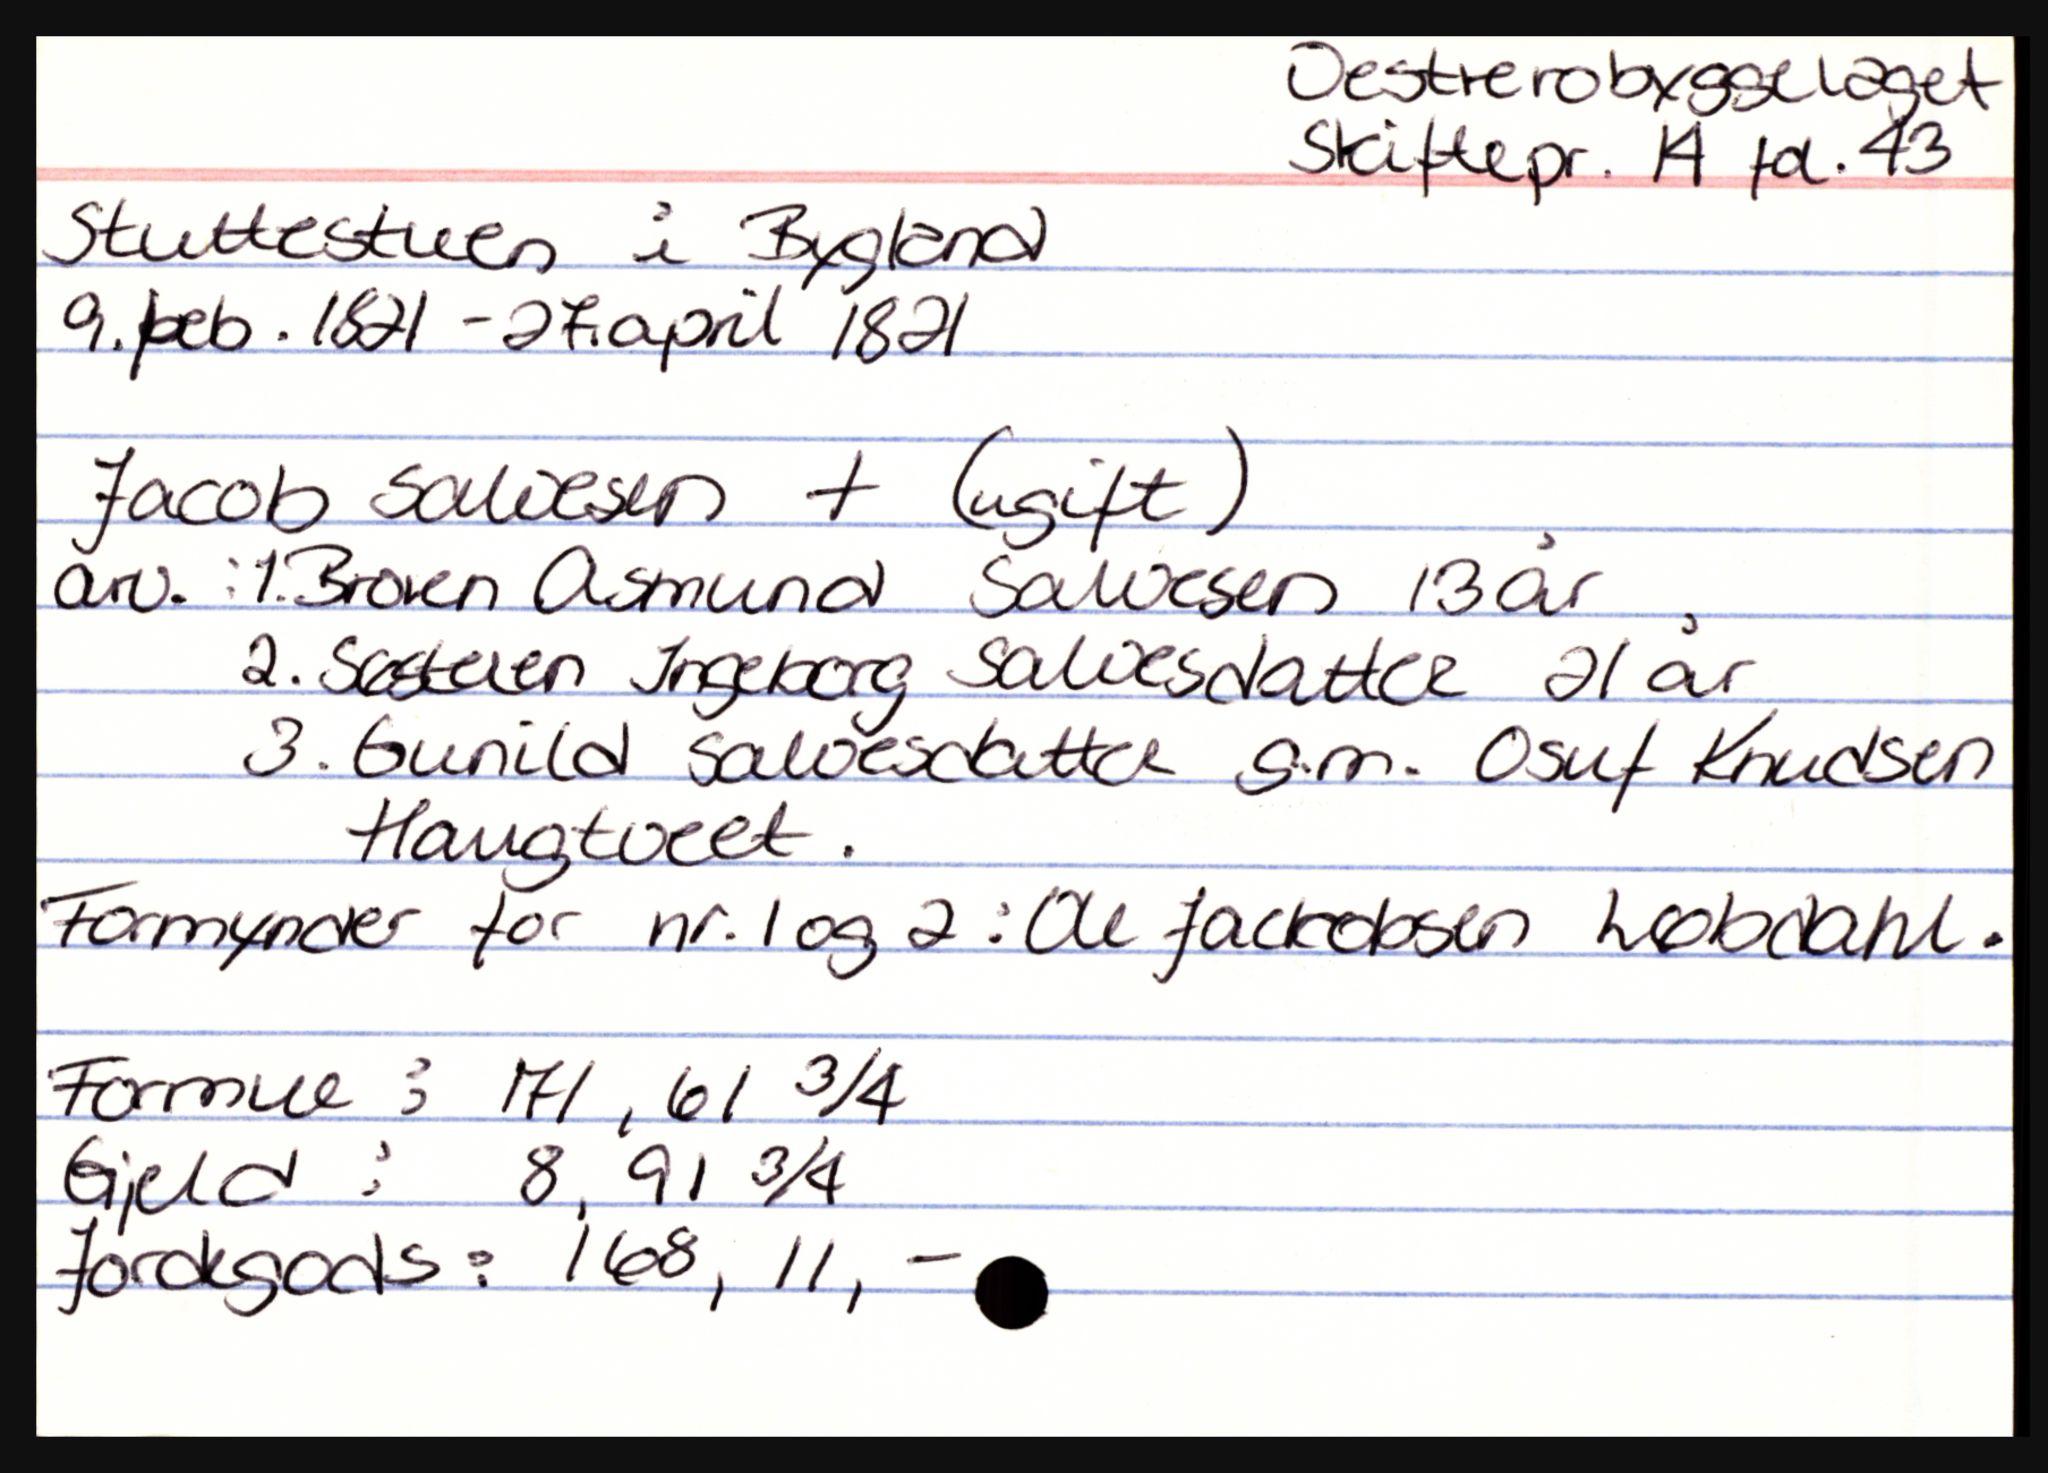 Oestrerobyggelaget
Skiftepr. 14 fol. 43
Stuttestuen i Bygland
9. feb. 1821 - 27. april 1821
Jacob Salvesen + (ugift)
arv. : 1. Broren Asmund Salvesen 13 år
2. Søsteren Ingeborg Salvesdatter 21 år
3. Gunild Salvesdatter g.m. Osuf Knudsen
Haugtveet.
Formynder for nr. 1 og 2 : Ole Jackobsen Løbdahl.
Formue : 171, 61 3/4
Gjeld : 8, 91 3/4
Jordegods : 168, 11, -